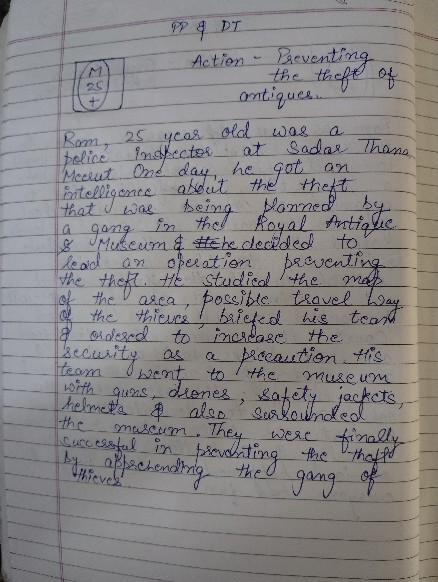 PP & DT
M
25
+
Action - Preventing
the theft of
antiques.
Ram, 25 year old was a
police inspector at Sadar Thana
Meerut One day, he got an
intelligence about the theft
that was being planned by
a gang in the Royal Antique
& Museum & he decided to
lead an operation preventing
the theft. He studied the map
of the area, possible travel way
of the thieves, briefed his team
& ordered to increase the
security as a precaution. His
team went to the museum
with guns, drones, safety jackets,
helmets & also surrounded
the museum. They were finally
successful in preventing the theft
by apprehending the gang of
thieves